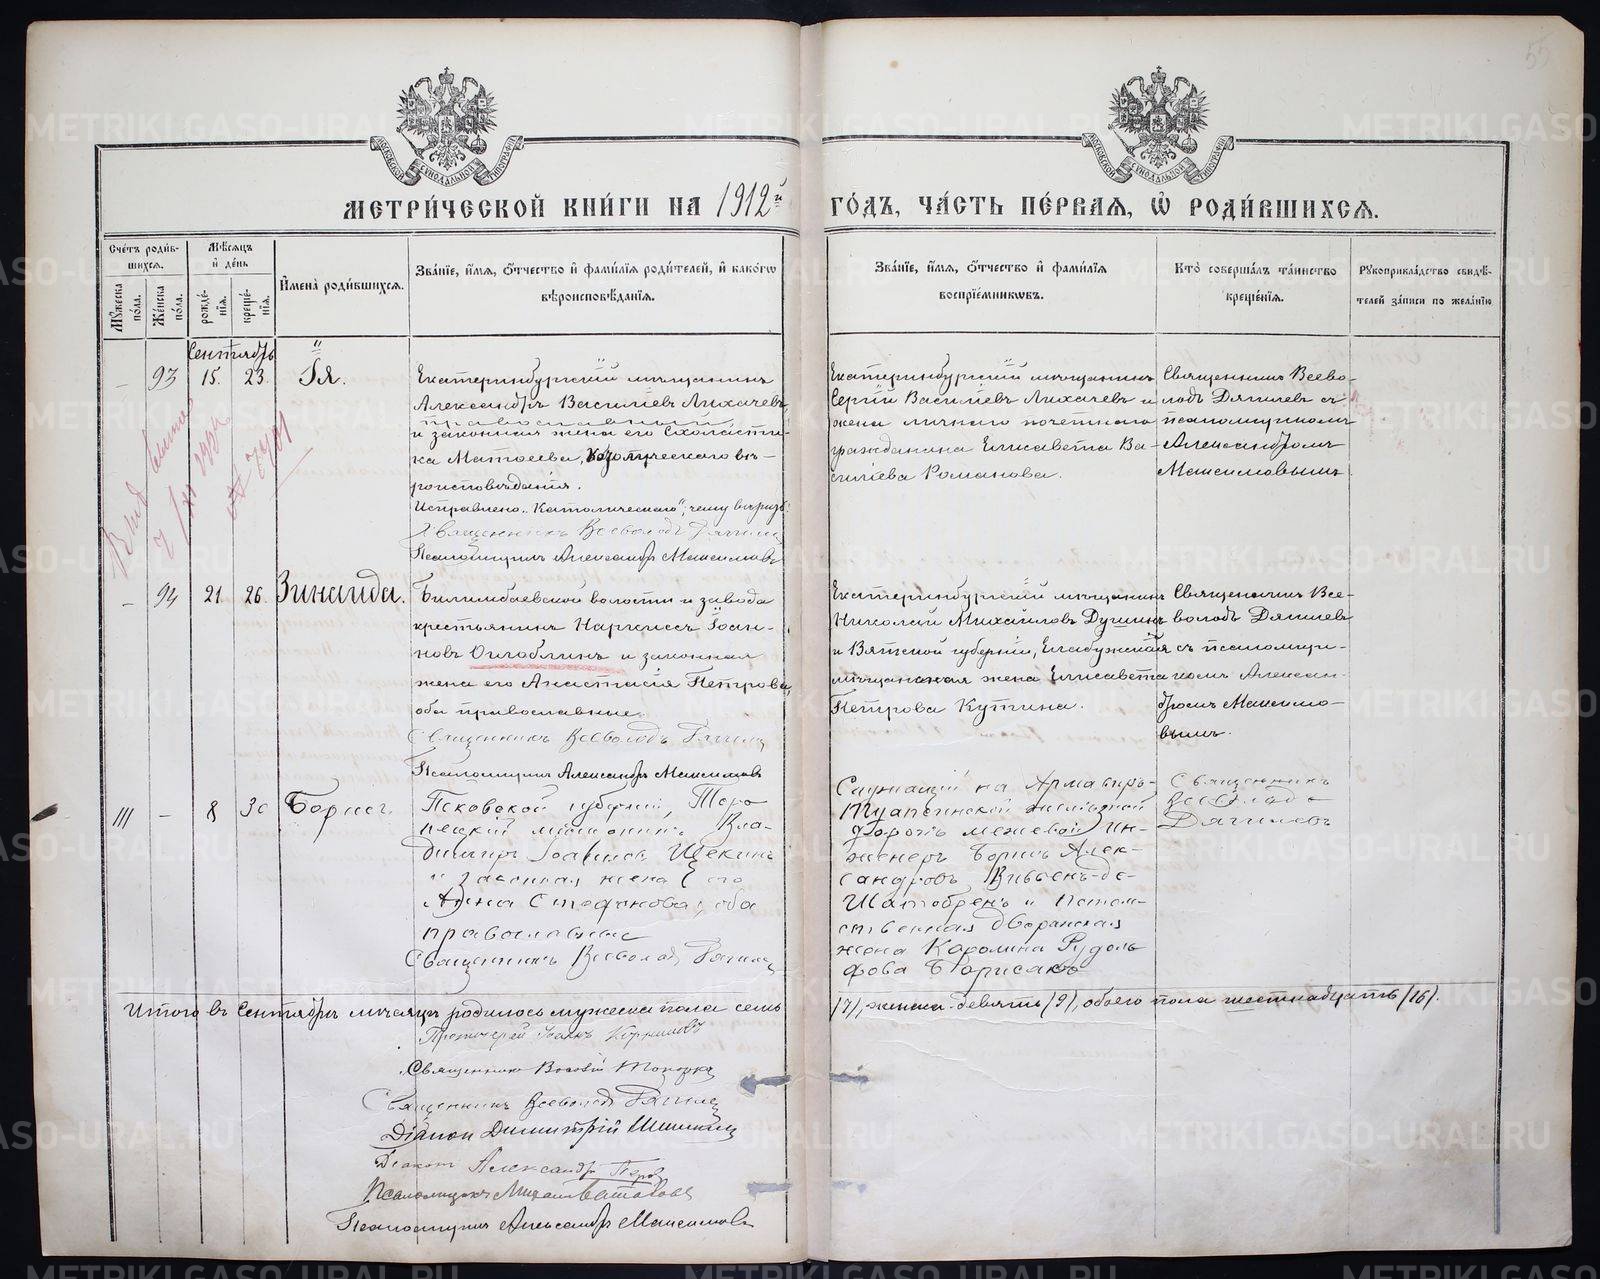 55
МОСКОВСКОЙ СѴНОДАЛЬНОЙ ТИПОГРАФІИ
МОСКОВСКОЙ СѴНОДАЛЬНОЙ ТИПОГРАФІИ
МЕТРИ́ЧЕСКОЙ КНИ́ГИ НА 1912й ГО́ДЪ, ЧА́СТЬ ПЕ́РВАЯ, Ѽ РОДИ́ВШИХСѦ.
Сче́тъ роди́в-
шихсѧ.
Мꙋ́жеска по́ла.
Же́нска по́ла.
Мѣ́сѧцъ
и҆ де́нь
рожде́-
нїѧ.
креще́-
нїѧ.
И҆мена̀ роди́вшихсѧ.
Зва́нїе, и҆́мѧ, ѻ҆́тчество и҆ фами́лїѧ роди́телей, и҆ како́гѡ
вѣроисповѣ́данїѧ.
Зва́нїе, и҆́мѧ, ѻ҆́тчество и҆ фами́лїѧ
воспрїе́мникѡвъ.
Кто̀ соверша́лъ та́инство
креще́нїѧ.
Рꙋкоприкла́дство свидѣ́-
телей за́писи по жела́нїю
Сентябрь
– 93 15. 23. Ія.
Екатеринбургскій мѣщанинъ
Александръ Василіевъ Лихачевъ,
православный
и законная жена его Схоласти-
ка Матѳеева, католическаго вѣ-
роисповѣданія.
Исправлено „католическаго“, чему вѣрить
Священникъ Всеволодъ Дягилев
Псаломщикъ Александръ Максимовъ
Екатеринбургскій мѣщанинъ
Сергій Василіевъ Лихачевъ и
жена личнаго почетнаго
гражданина Елисавета Ва-
силіева Романова.
Священникъ Всево-
лодъ Дягилевъ съ
псаломщикомъ
Александромъ
Максимовымъ
– 94 21 26. Зинаида.
Билимбаевской волости и завода
крестьянинъ Наркиссъ Іоан-
новъ Оглоблинъ и законная
жена его Анастасія Петрова,
оба православные.
Священникъ Всеволодъ Дягилев
Псаломщикъ Александръ Максимовъ
Екатеринбургскій мѣщанинъ
Николай Михайловъ Душинъ
и Вятской губерніи, Елабужская
мѣщанская жена Елисавета
Петрова Кутина.
Священникъ Все-
володъ Дягилевъ
съ псаломщи-
комъ Алексан-
дромъ Максимо-
вымъ.
111 – 8 30 Борисъ.
Псковской губерніи, Торо
пецкій мѣщанинъ Вла-
диміръ Іоанновъ Щекинъ
и законная жена его
Анна Стефанова, оба
православные
Священникъ Всеволодъ Дягилев
Служащій на Армавиръ-
Туапсинской желѣзной
дорогѣ межевой ин-
женеръ Борисъ Алек-
сандровъ Вивьенъ-де-
Шатобренъ и потом-
ственная дворянская
жена Каролина Рудоль
фова Борисякъ
Священникъ
Всеволодъ
Дягилевъ
Итого въ Сентябрѣ мѣсяцѣ родилось мужеска пола семь
(7), женска девять (9), обоего пола шестнадцать (16).
Протоіерей Іоаннъ Корниловъ
Священникъ
Священникъ Всеволодъ Дягилев
Діаконъ Димитрій
Діаконъ Александръ
Псаломщикъ Михаилъ
Псаломщикъ Александръ Максимовъ
METRIKI.GASO-URAL.RU